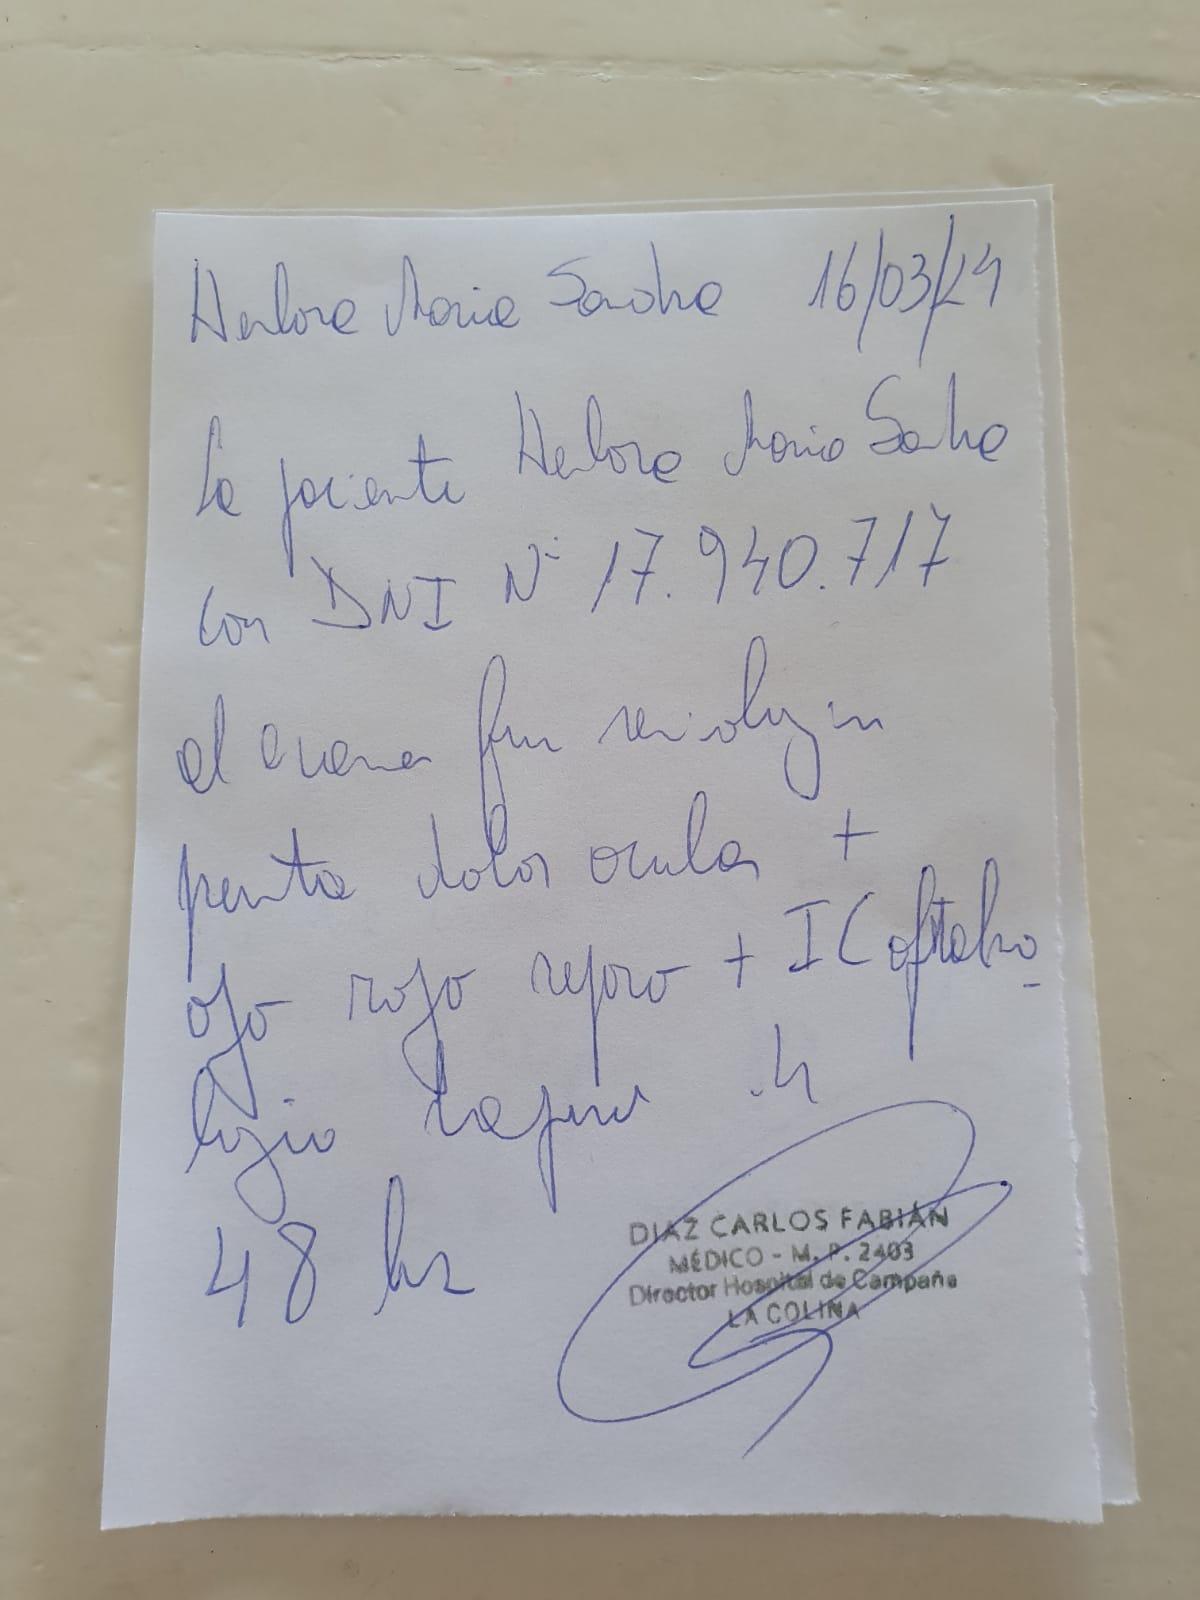 Herlore Maria Sandra 16/03/24
La paciente Herlore Maria Sandra
con DNI Nº 17.940.717
al examen semiologico
presenta dolor ocular +
ojo rojo reposo + IC oftalmo-
logia
48 hs
DIAZ CARLOS FABIÁN
MÉDICO - M. P. 2403
Director Hospital de Campaña
LA COLINA